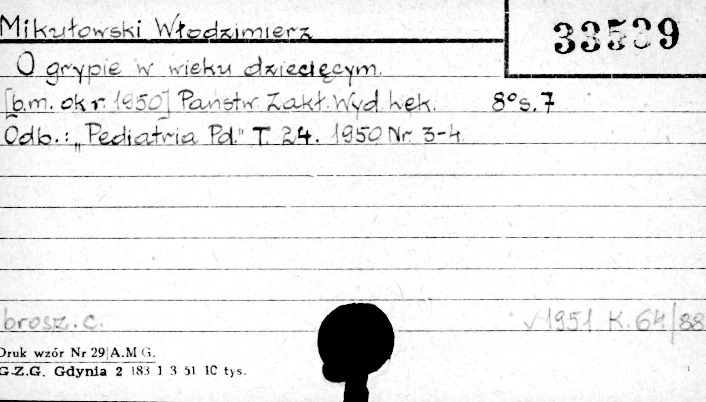 Mikułowski Włodzimierz
33539
O grypie w wieku dziecięcym.
[b.m. ok r. 1950] Państw. Zakł. Wyd. Lek. 8° s. 7
Odb.: „Pediatria Pol." T. 24. 1950 Nr 3-4.
brosz. c. √ 1951 K. 64/88
Druk wzór Nr 29 A.M G.
G.Z.G. Gdynia 2 183 1 3 51 10 tys.